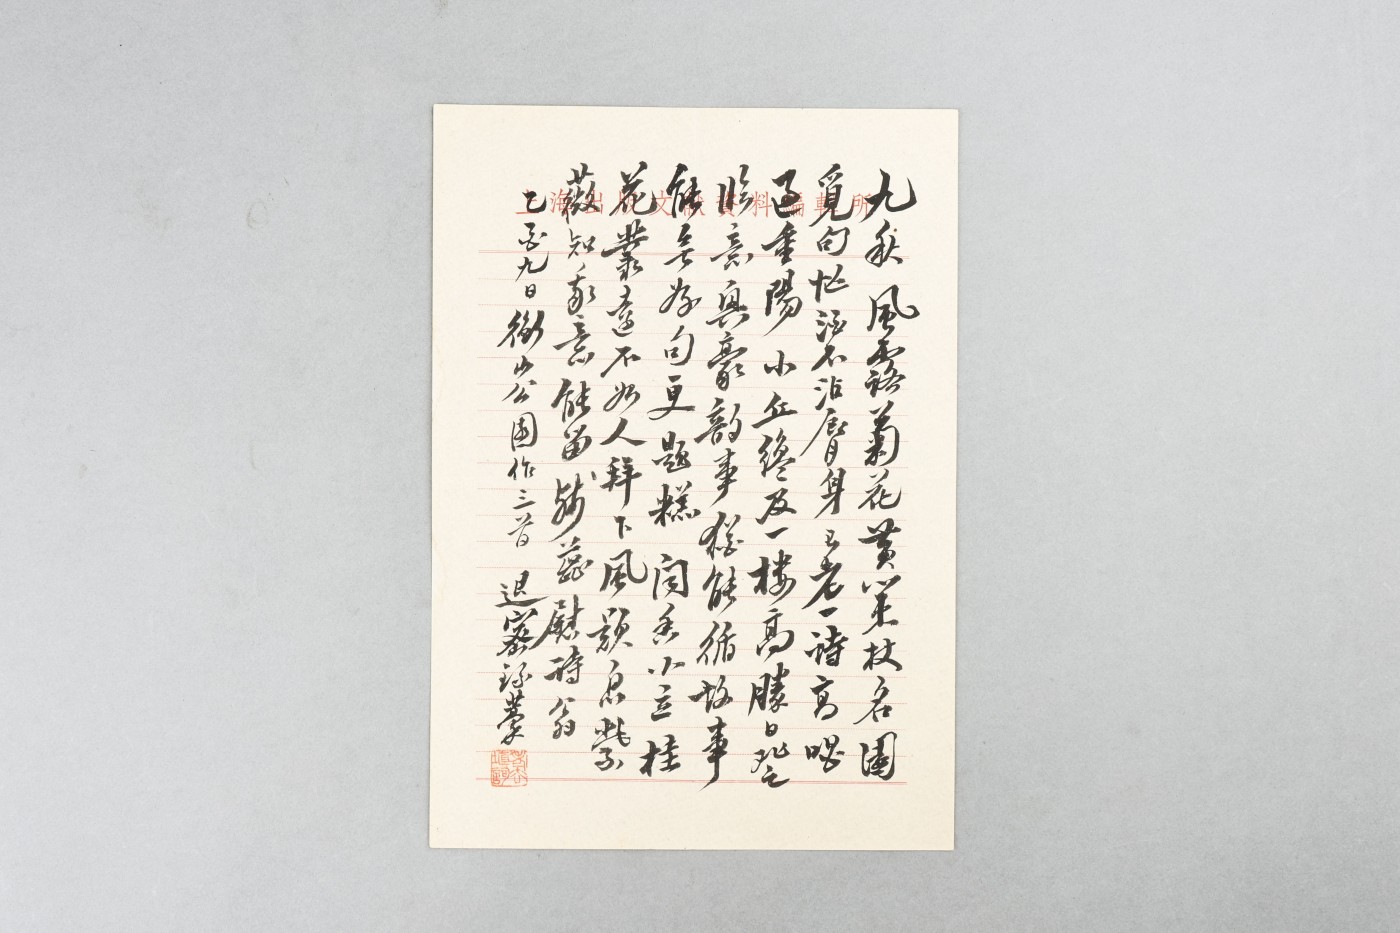 上海出版文獻資料編輯所
九秋風露菊花黃策杖名園
覓句忙酒不沾脣身已老一詩高唱
過重陽小丘終及一樓高勝日登
臨意興豪韵事猶能循故事
能無好句更題糕聞香小立桂
花叢遠不如人拜下風紫
薇知我意能留殘蕊慰詩翁
乙酉九日衡山公園作三首 退密録藁